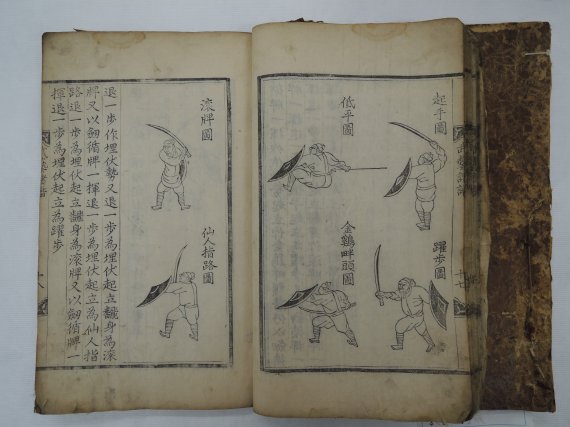 起手圖
躍步圖
低平圖
金鷄畔頭圖
滚牌圖
仙人指路圖
退一步作埋伏勢又退一步為埋伏起立飜身為滚
牌又以劒循牌一揮退一步為埋伏起立為仙人指
路退一步為埋伏起立飜身為滚牌又以劒循牌一
揮退一步為埋伏起立為躍步